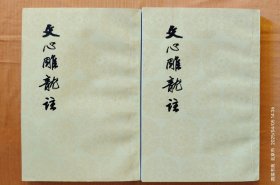 文心雕龍註
文心雕龍註